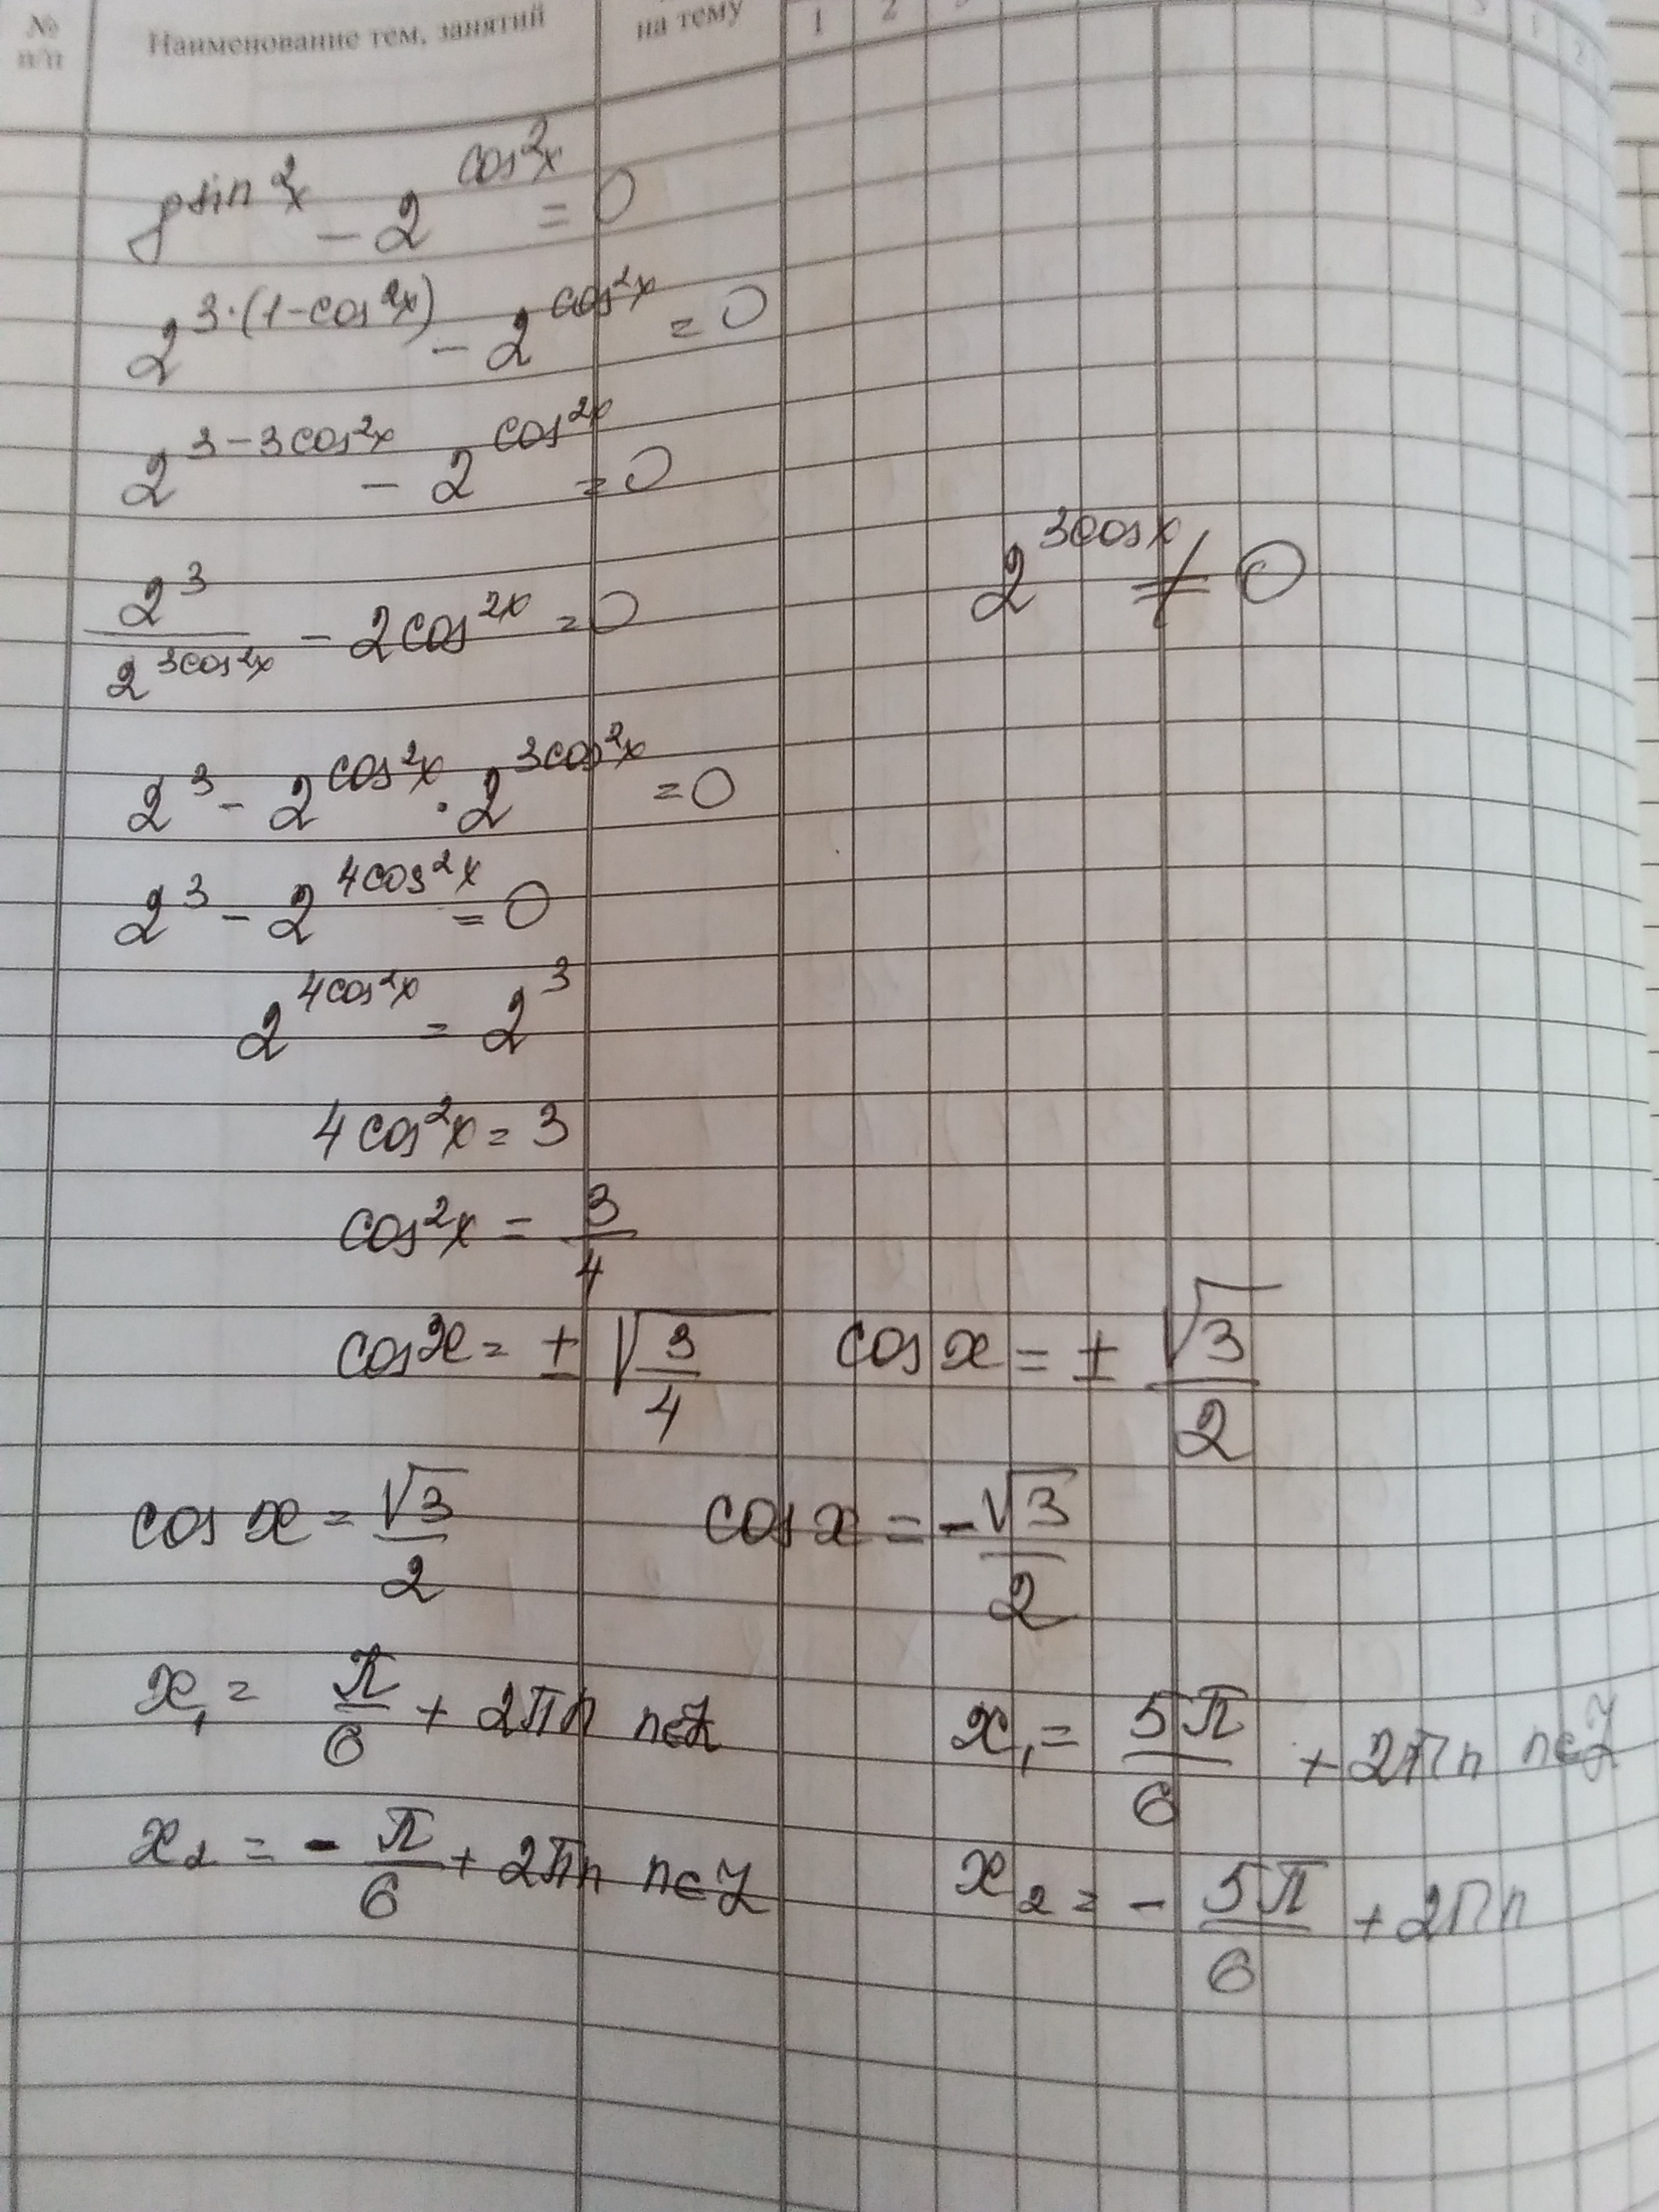 № п/п Наименование тем, занятий на тему 1 2 3 5 1 2
8^{sin²x} - 2^{cos²x} = 0
2^{3·(1-cos²x)} - 2^{cos²x} = 0
2^{3-3cos²x} - 2^{cos²x} = 0
2^{3cosx} ≠ 0
2³/2^{3cos²x} - 2cos^{2x} = 0
2³ - 2^{cos²x} · 2^{3cos²x} = 0
2³ - 2^{4cos²x} = 0
2^{4cos²x} = 2³
4cos²x = 3
cos²x = 3/4
cosx = ± √(3/4) cos x = ± √3/2
cos x = √3/2 cos x = -√3/2
x₁ = π/6 + 2πn n∈Z x₁ = 5π/6 + 2πn n∈Z
x₂ = - π/6 + 2πn n∈Z x₂ = - 5π/6 + 2πn